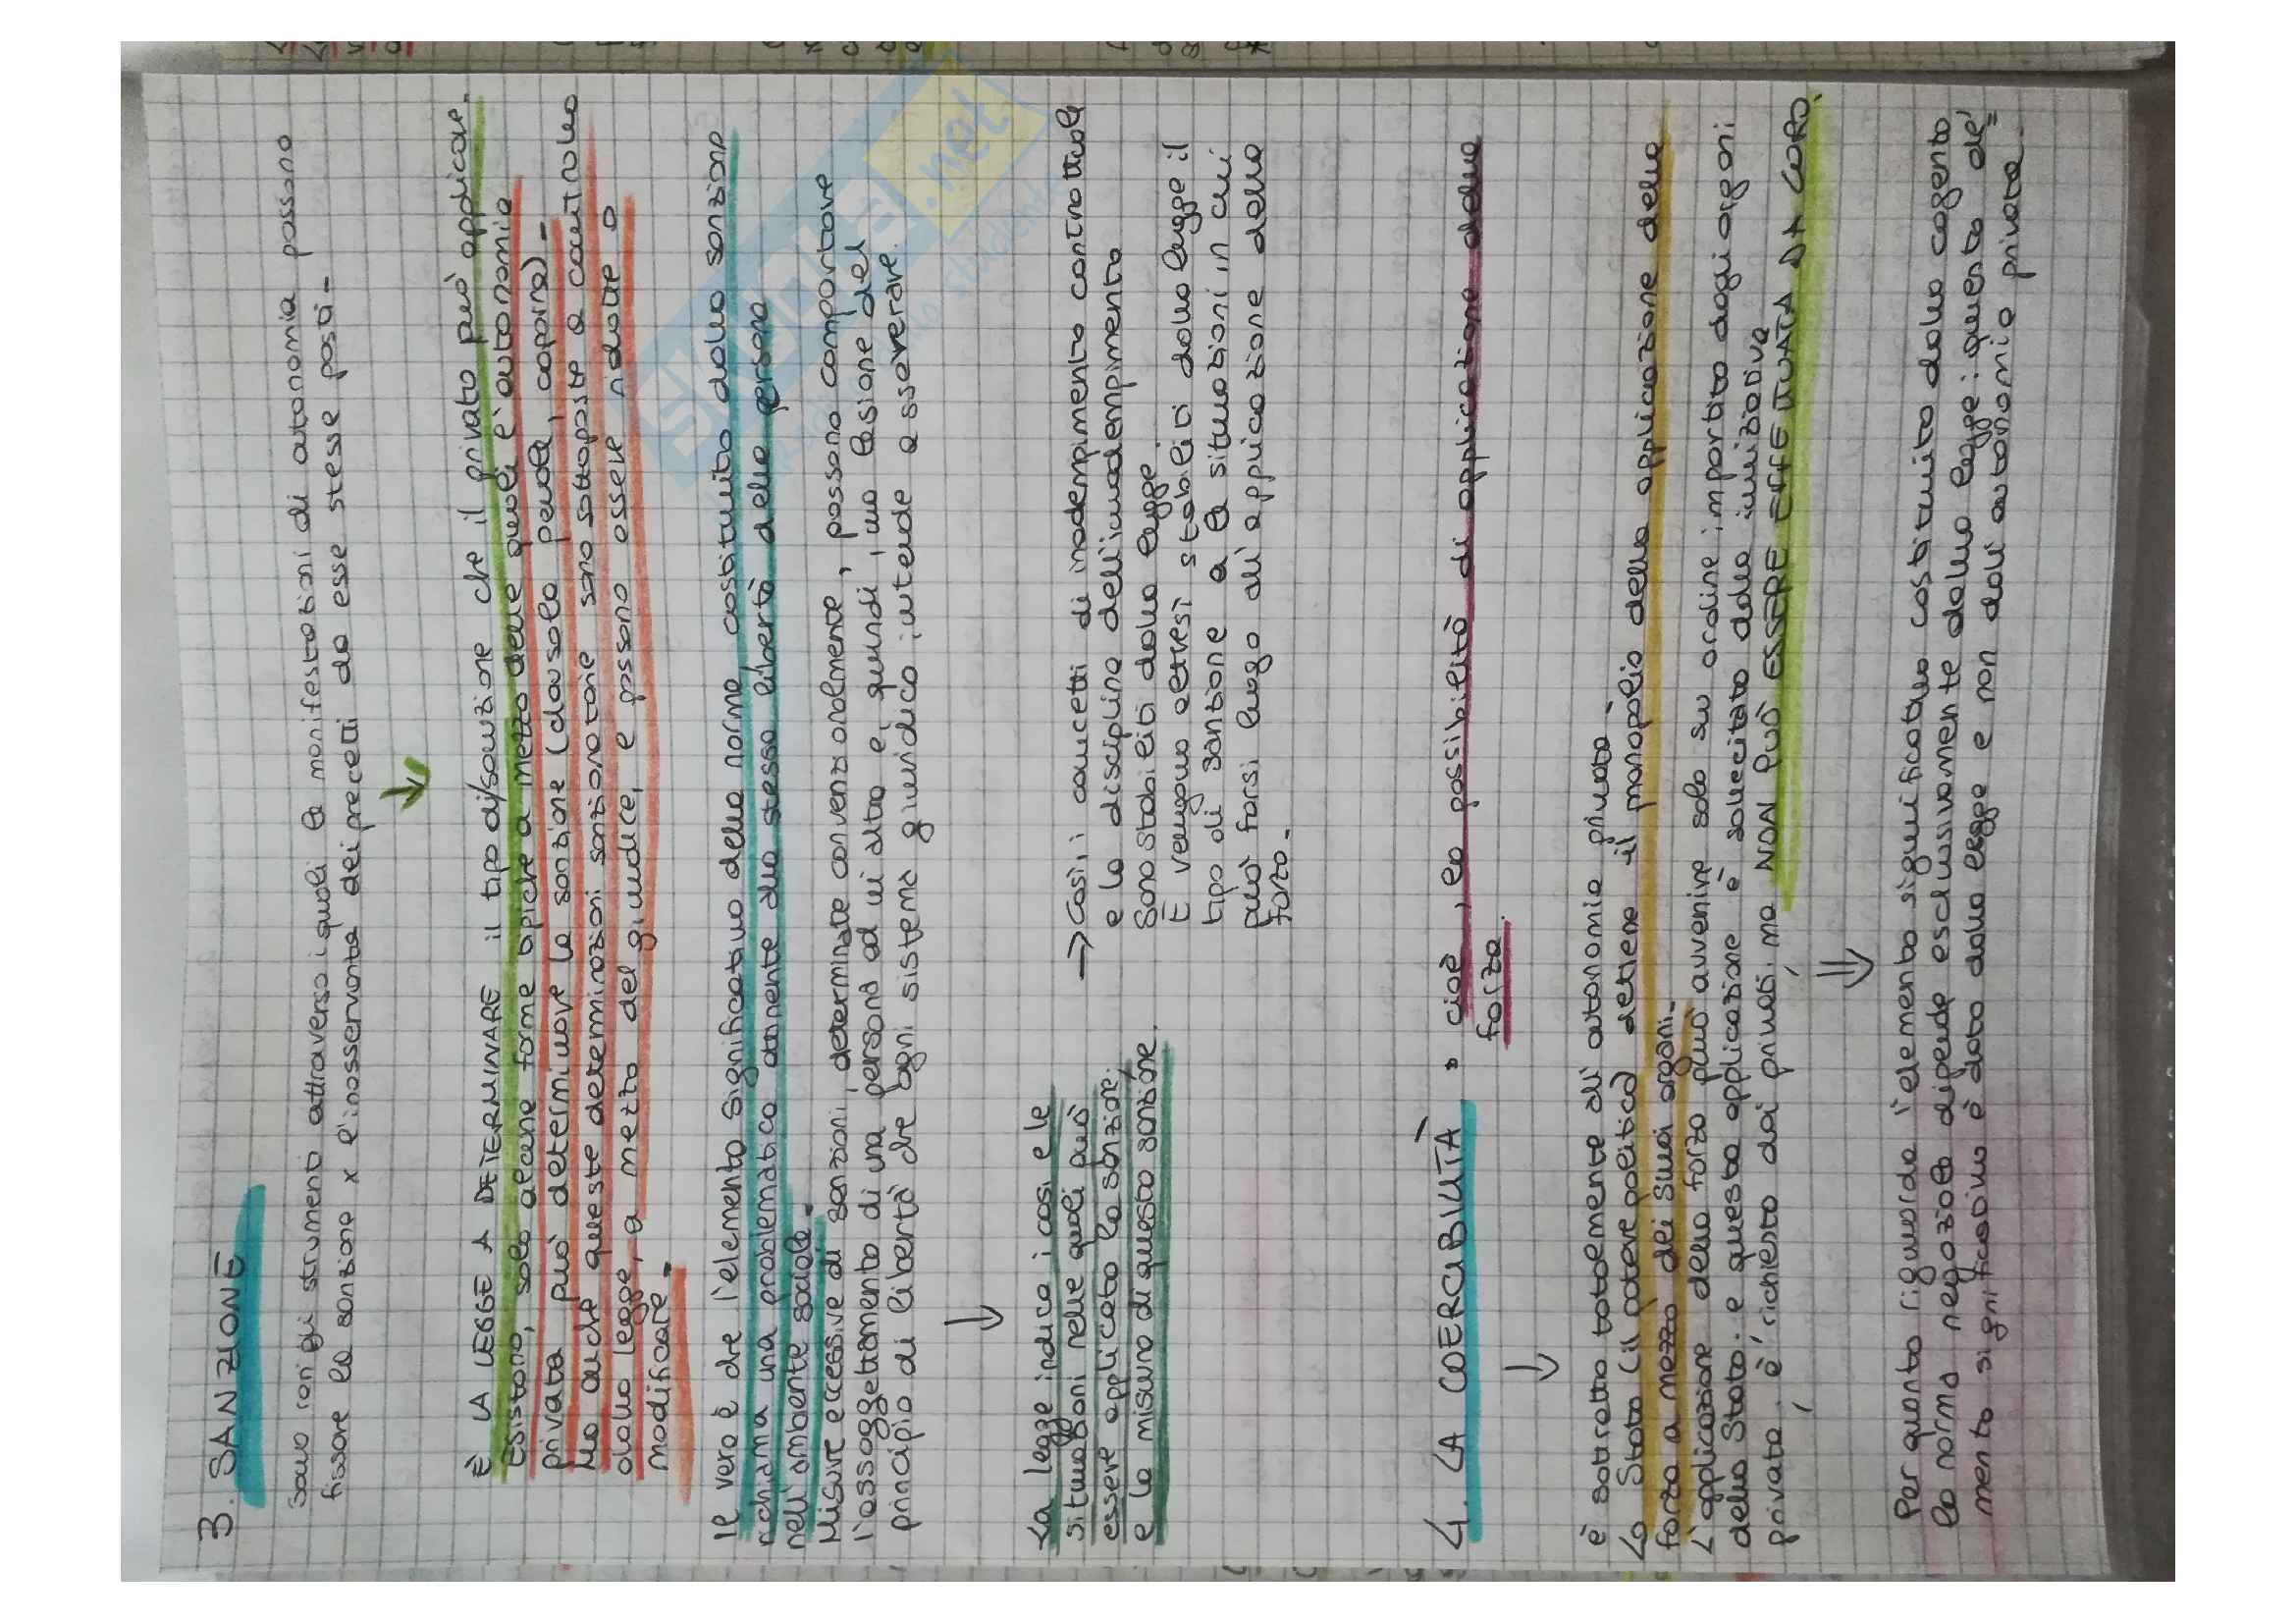 3. SANZIONE
Sono rari gli strumenti attraverso i quali la manifestazioni di autonomia possono
fissare la sanzione x l'inosservanta dei precetti da esse stesse posti-
È LA LEGGE A DETERMINARE il tipo di sanzione che il privato può applicare.
Esistono, solo alcune forme tipiche a mezzo delle quali è autonomia
privata può determinare la sanzione (clausola penale, caparra)-
Ma anche queste determinazioni sanzionatorie sono sottoposte a controllo
dalla legge, a mezzo del giudice, e possono essere ridotte o
modificare.
Il vero è che l'elemento significativo della norma costituito dalla sanzione
richiama una problematica attinente alla stessa libertà delle persone
nell'ambiente sociale.
Misure eccessive di sanzioni, determinate convenzionalmente, possono comportare
l'assoggettamento di una persona ad un'altra e, quindi, una lesione del
principio di libertà che ogni sistema giuridico intende asseverare.
La legge indica i casi e le
situazioni nelle quali può
essere applicata la sanzione;
e la misura di questa sanzione.
→ Così i concetti di inadempimento contrattuale
e la disciplina dell'inadempimento
sono stabiliti dalla legge.
E vengono altresì stabiliti dalla legge il
tipo di sanzione e le situazioni in cui
può farsi luogo all'applicazione della
forza.
4. LA COERCIBILITÀ • cioè, la possibilità di applicazione della
forza.
è sottratto totalmente all'autonomia privata.
Lo Stato (il potere politico) detiene il monopolio della applicazione della
forza a mezzo dei suoi organi.
L'applicazione della forza può avvenire solo su ordine impartito dagli organi
dello Stato: e questa applicazione è sollecitata dalla iniziativa
privata, è richiesta dai privati, ma NON PUÒ ESSERE EFFETTUATA DA LORO.
Per quanto riguarda l'elemento significativo costituito dalla cogenta
la norma negoziale dipende esclusivamente dalla legge: questo ele=
mento significativo è dato dalla legge e non dall'autonomia privata.
Skuola.net